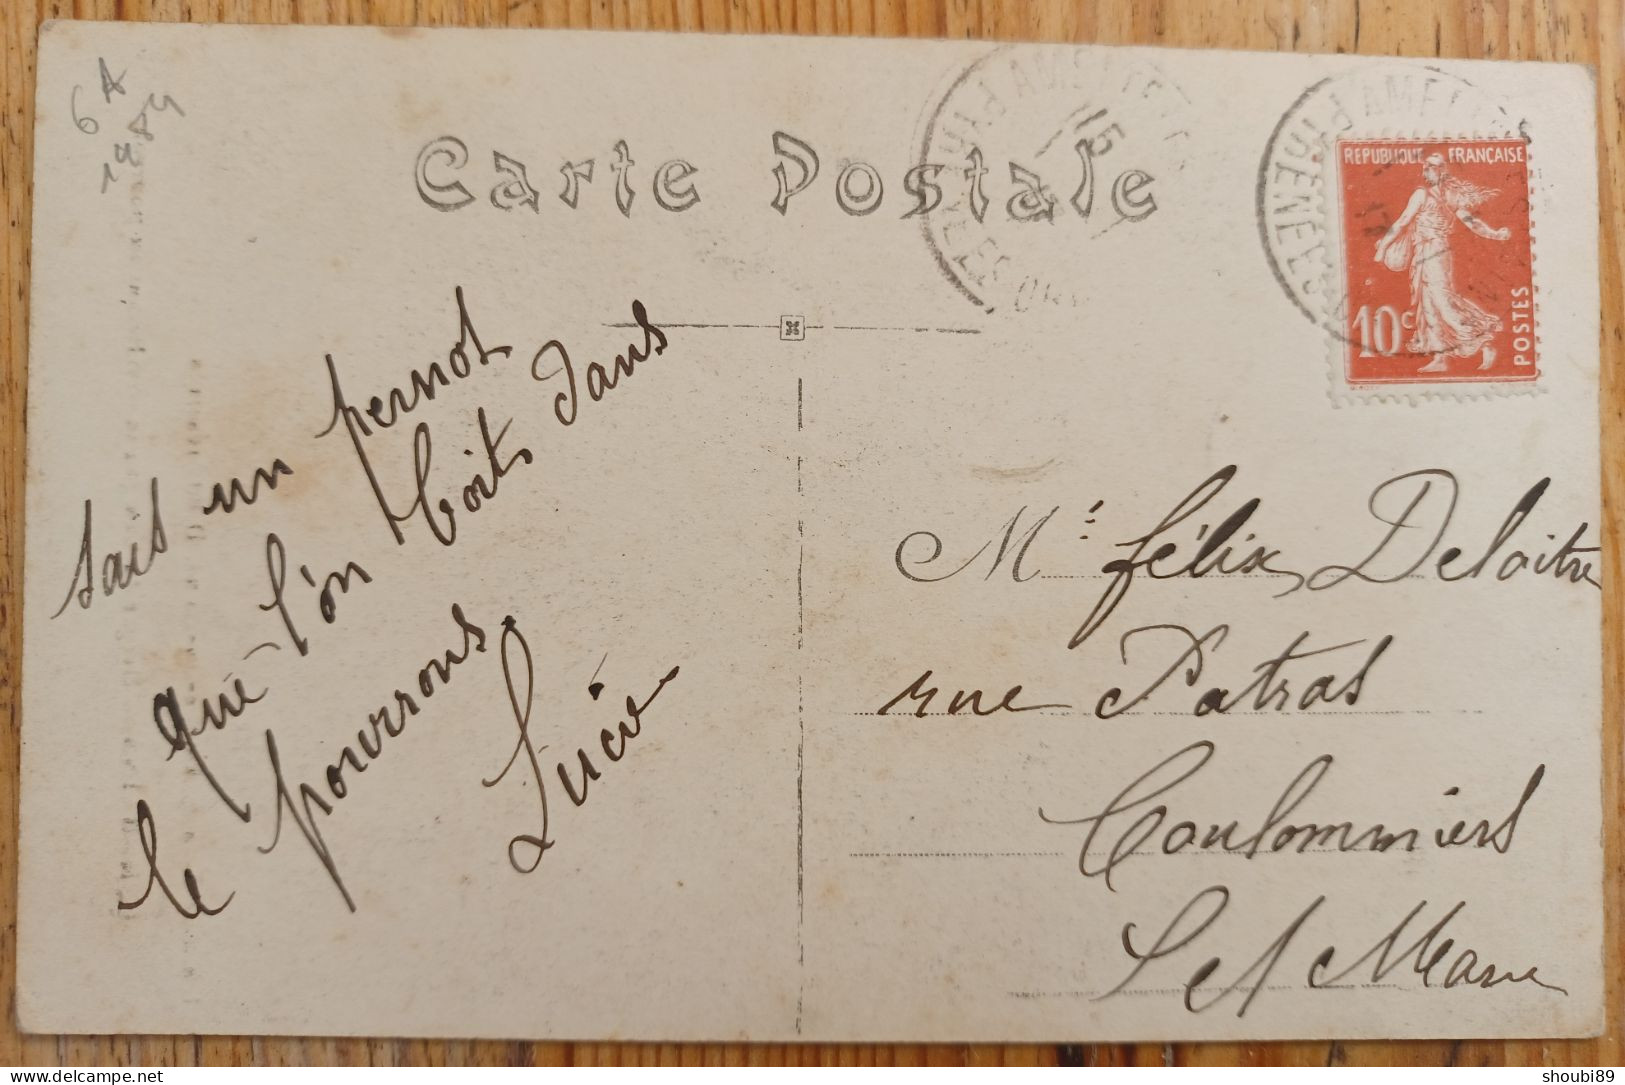 6A
1984
Carte Postale
AMELIE
PYRENEES
15
RÉPUBLIQUE FRANÇAISE
10c
POSTES
sais un pernot
que l'on boit dans
le pourrons
Lucie
Mr félix Deloitre
rue Patras
Coulommiers
S et Marne
delcampe.net
shoubi89